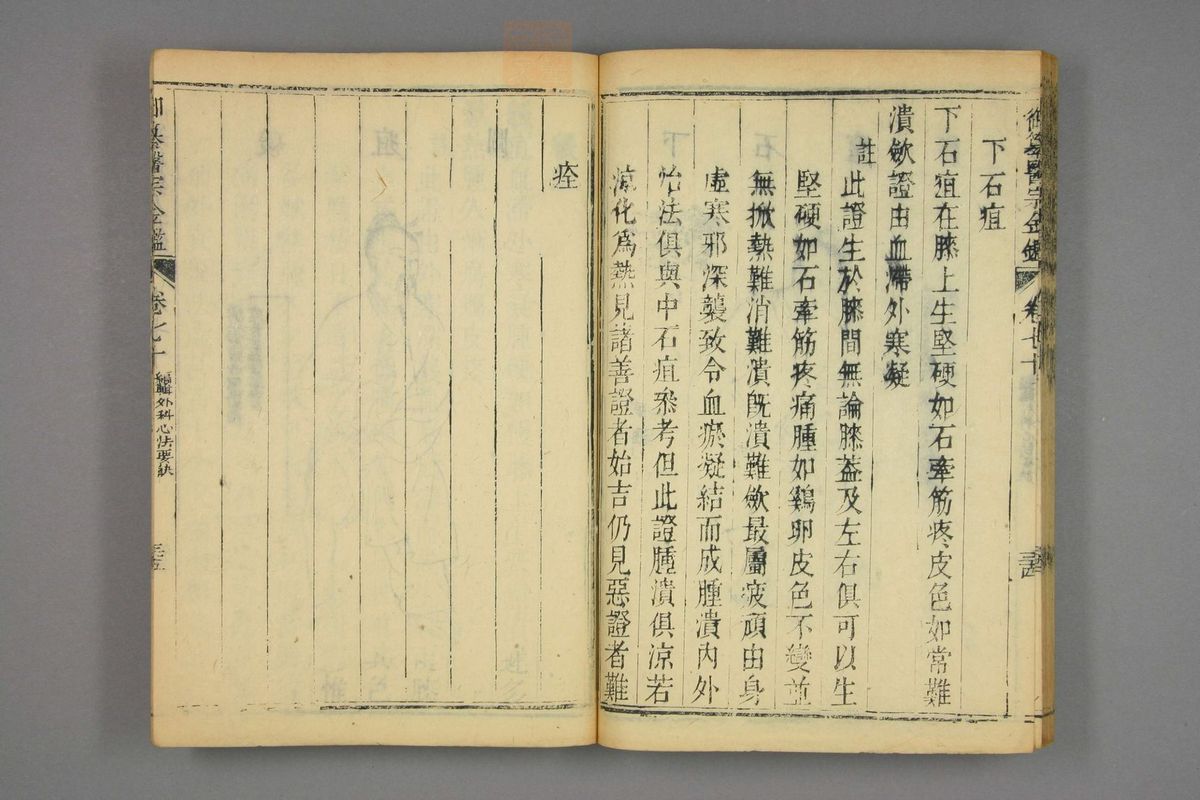 御纂醫宗金鑑 卷七十
下石疽
下石疽在膝上生堅硬如石牽筋疼皮色如常難
潰歛證由血滯外寒凝
註此證生於膝間無論膝葢及左右俱可以生
堅硬如石牽筋疼痛腫如鷄卵皮色不變並
無掀熱難消難潰旣潰難歛最屬疲頑由身
虛寒邪深襲致令血瘀凝結而成腫潰內外
治法俱與中石疽叅考但此證腫潰俱涼若
涼化爲熱見諸善證者始吉仍見惡證者難
痊
御纂醫宗金鑑 卷七十 編輯外科心法要訣